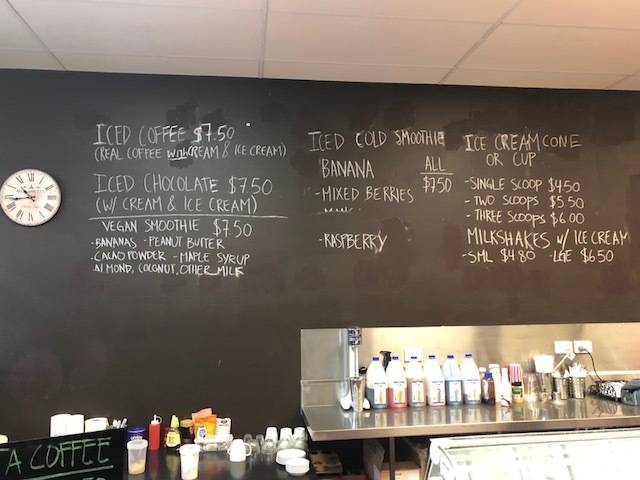 ICED COFFEE $7.50
(REAL COFFEE with CREAM & ICE CREAM)
ICED CHOCOLATE $7.50
(W/ CREAM & ICE CREAM)
VEGAN SMOOTHIE $7.50
- BANANAS - PEANUT BUTTER
- CACAO POWDER - MAPLE SYRUP
ALMOND, COCONUT, OTHER MILK
ICED COLD SMOOTHIE
BANANA ALL
- MIXED BERRIES $7.50
- RASPBERRY
ICE CREAM CONE
OR CUP
- SINGLE SCOOP $4.50
- TWO SCOOPS $5.50
- THREE SCOOPS $6.00
MILKSHAKES W/ ICE CREAM
- SML $4.80 - LGE $6.50
A COFFEE